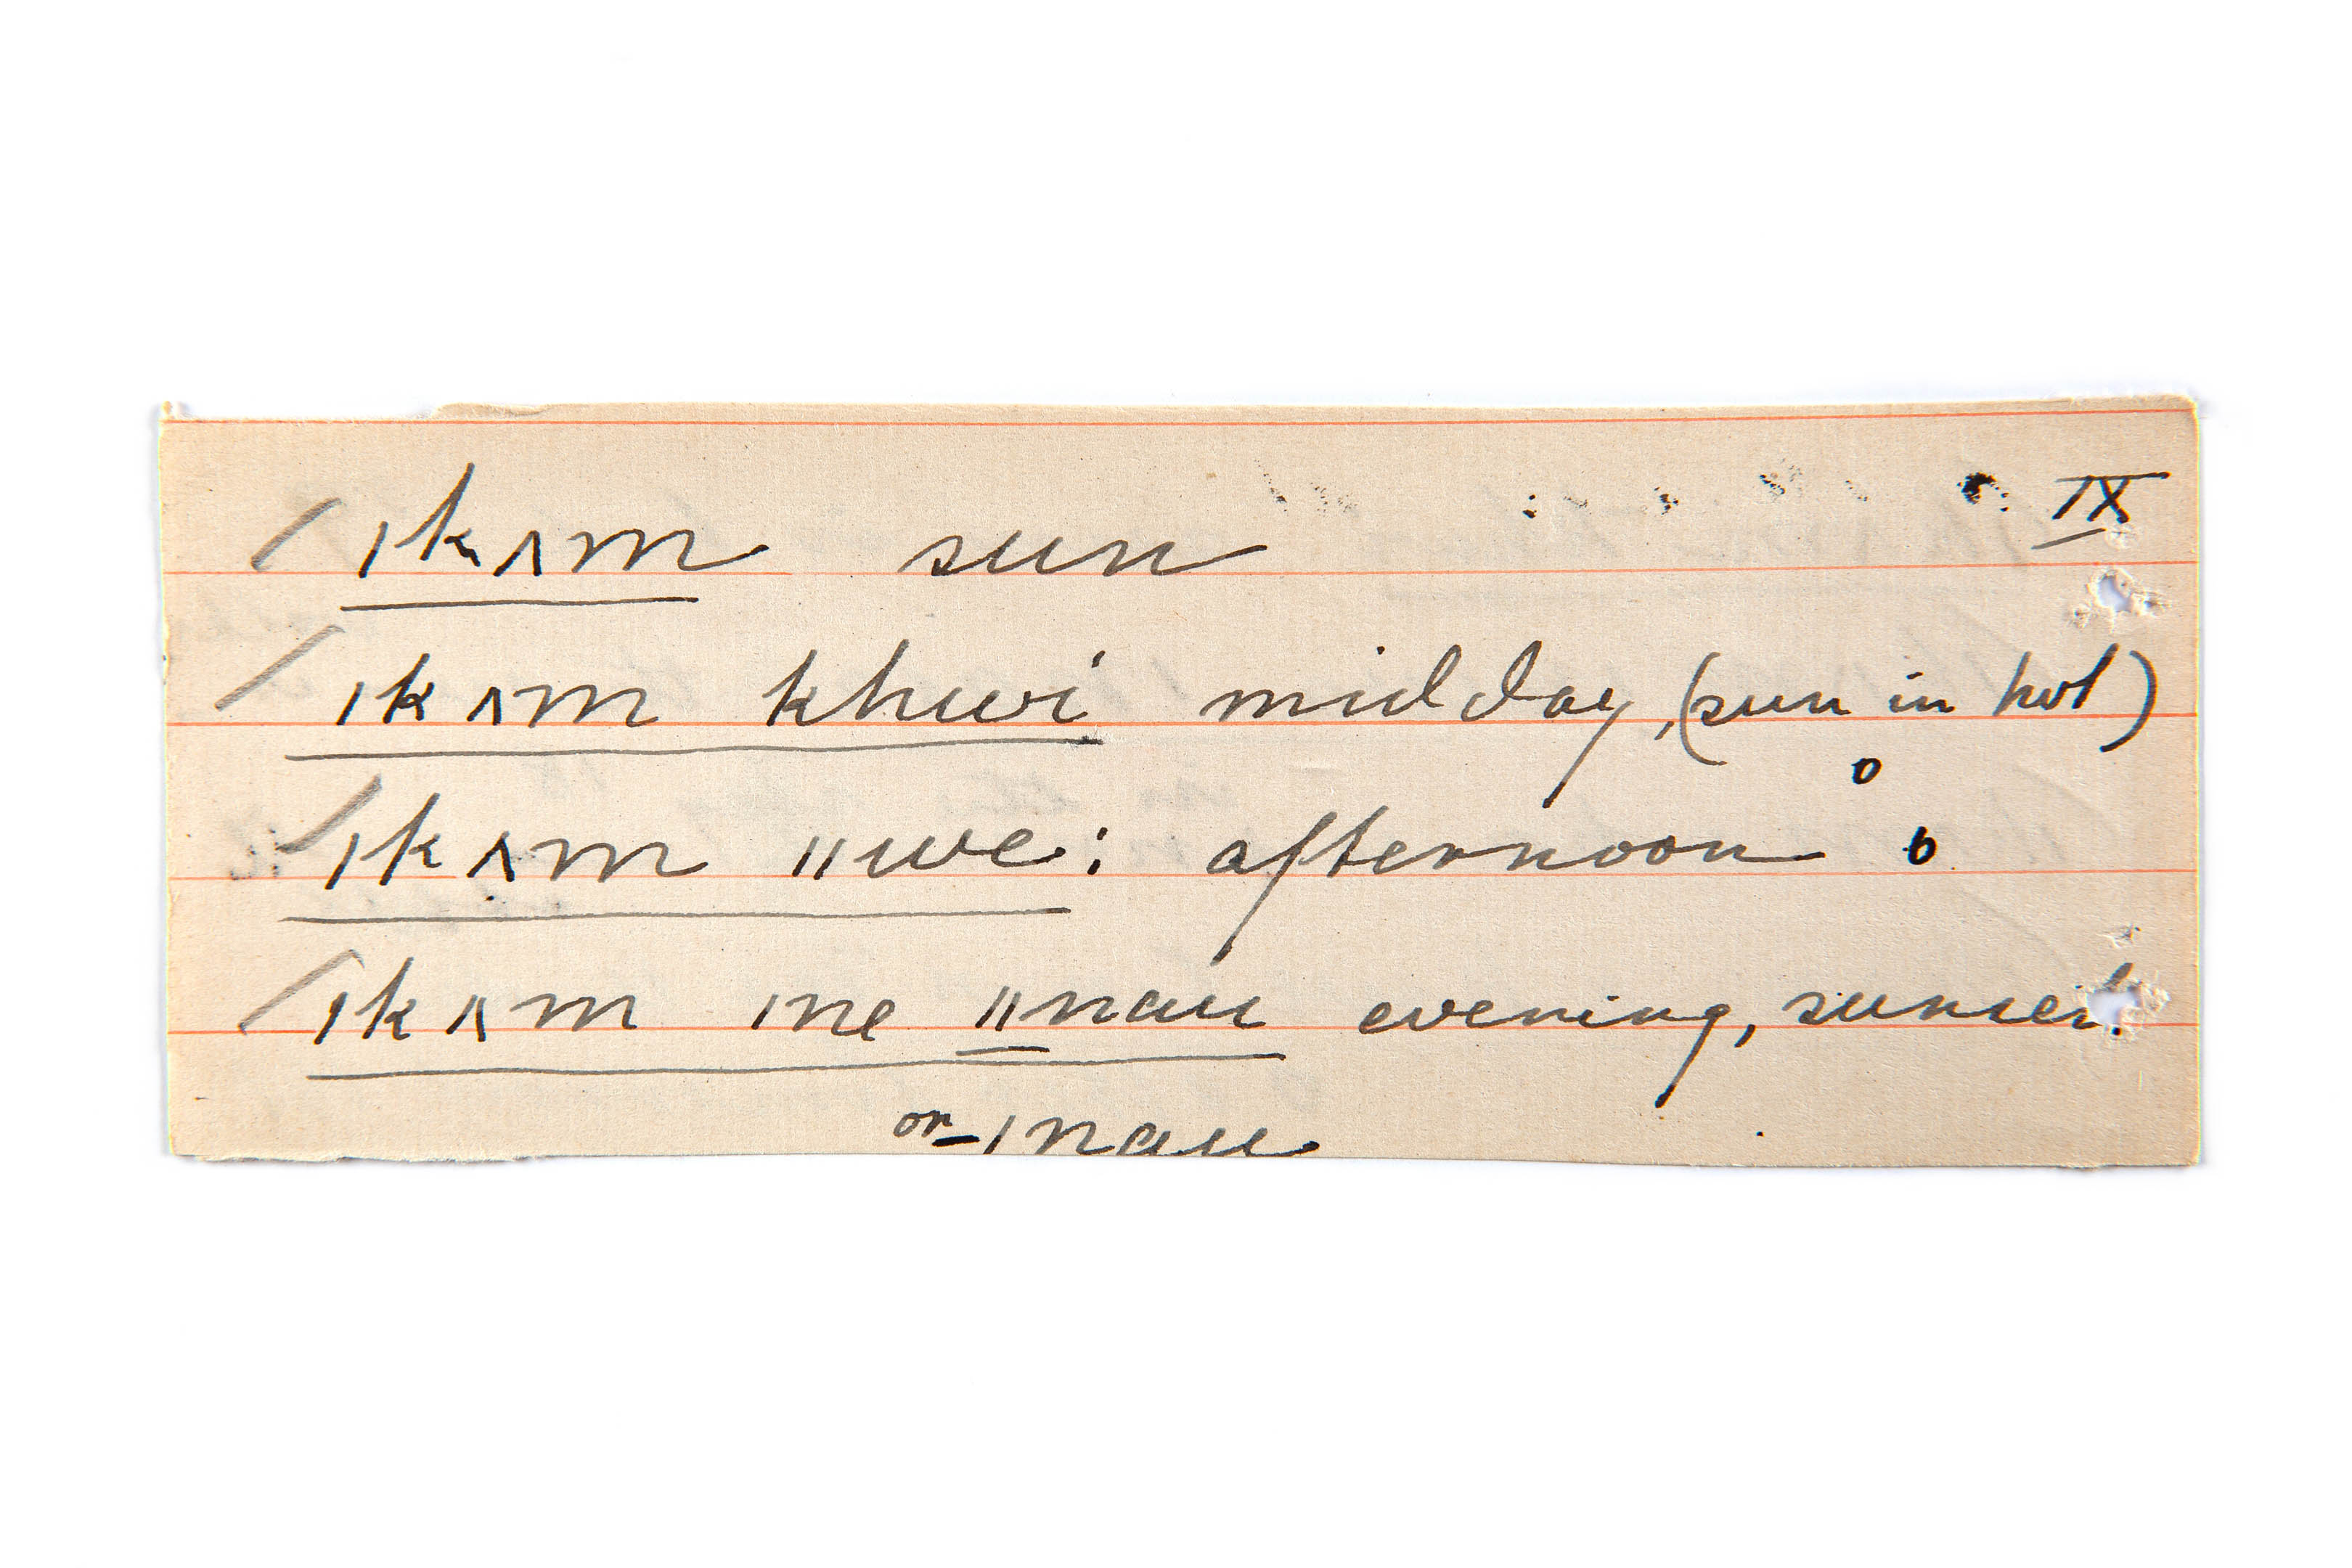 IX
ǀkʌm sun
ǀkʌm khwi midday, (sun in hot)
ǀkʌm ǁwe: afternoon
ǀkʌm ǀne ǁnau evening, sunset
or ǀnau